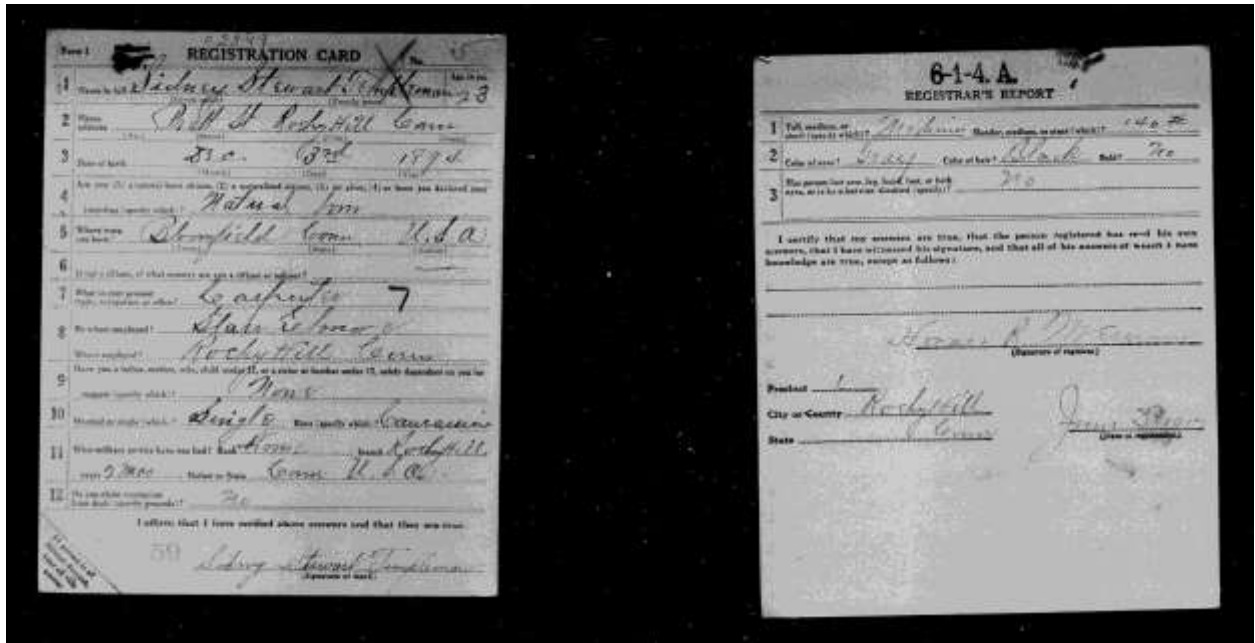 Form 1 REGISTRATION CARD No.
1 Name in full Sidney Stewart Templeman Age in yrs. 23
2 Home address St Rocky Hill Conn
3 Date of birth Dec. 3rd 1894
4 Are you (1) a natural-born citizen, (2) a naturalized citizen, (3) an alien, (4) or have you declared your
intention (specify which)? Natural born
5 Where were you born? Bloomfield Conn U.S.A
6 If not a citizen, of what country are you a citizen or subject?
7 What is your present trade, occupation or office? Carpenter 7
8 By whom employed?
Where employed? Rocky Hill Conn
9 Have you a father, mother, wife, child under 12, or a sister or brother under 12, solely dependent on you for
support (specify which)? None
10 Married or single (which)? Single Race (specify which)? Caucasian
11 What military service have you had? Rank branch Rocky Hill
years 9 mos Nation or State Conn U.S.A.
12 Do you claim exemption from draft (specify grounds)? No
I affirm that I have verified above answers and that they are true.
59
Sidney Stewart Templeman
6-1-4. A.
REGISTRAR'S REPORT
1 Tall, medium, or short (specify which)? Medium Slender, medium, or stout (which)? 140 #
2 Color of eyes? Gray Color of hair? Black Bald? No
3 Has person lost arm, leg, hand, foot, or both eyes, or is he otherwise disabled (specify)? No
I certify that my answers are true, that the person registered has read his own
answers, that I have witnessed his signature, and that all of his answers of which I have
knowledge are true, except as follows:
(Signature of registrar)
Precinct 1
City or County Rocky Hill
State Conn
(Date of registration)